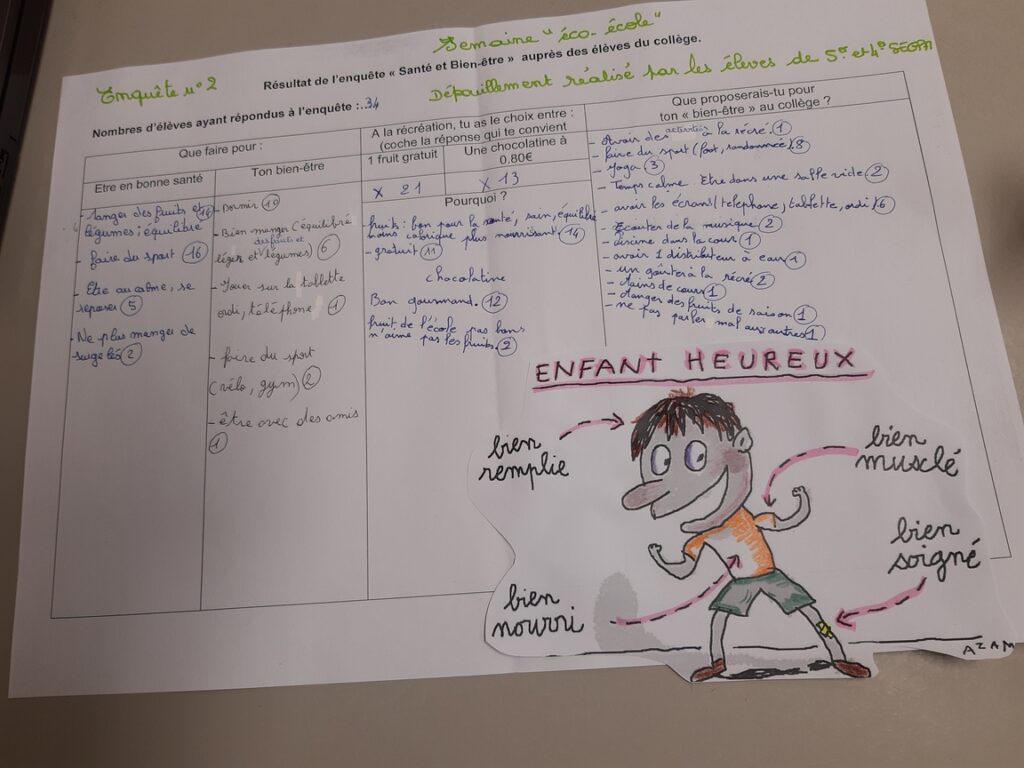 Semaine "éco-école"
Enquête n° 2
Résultat de l'enquête « Santé et Bien-être » auprès des élèves du collège.
Dépouillement réalisé par les élèves de 5e et 4e SEGPA
Nombres d'élèves ayant répondus à l'enquête : 34
Que faire pour :
Etre en bonne santé
- Manger des fruits et
légumes ; équilibré
- faire du sport 16
- Être au calme, se
reposer 5
- Ne plus manger de
surgelés 2
Ton bien-être
- Dormir 10
- Bien manger (équilibré
des fruits et
léger et légumes) 6
- Jouer sur la tablette
ordi, téléphone 1
- faire du sport
(vélo, gym) 2
- être avec des amis
1
A la récréation, tu as le choix entre :
(coche la réponse qui te convient
1 fruit gratuit
Une chocolatine à
0.80€
X 21
X 13
Pourquoi ?
fruits : bon pour la santé, sain, équilibré
moins calorique plus nourrissant 14
- gratuit 11
chocolatine
Bon gourmand. 12
fruit de l'école pas bons
n'aime pas les fruits. 2
Que proposerais-tu pour
ton « bien-être » au collège ?
- Avoir des activités à la récré. 1
- faire du sport (foot, randonnée) 8
- Yoga 3
- Temps calme. Etre dans une salle vide 2
- avoir les écrans (telephone, tablette, ordi) 6
- Ecouter de la musique 2
- piscine dans la cour 1
- avoir 1 distributeur à eau 1
- un goûter à la récré 2
- moins de cours 1
- manger des fruits de saison 1
- ne pas parler mal aux autres 1
ENFANT HEUREUX
bien
remplie
bien
musclé
bien
soigné
bien
nourri
AZAM